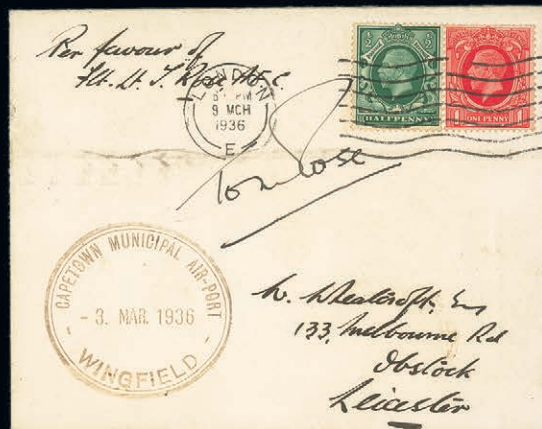 Per favour of
Flt. Lt. T. Rose
LONDON
PM
9 MCH
1936
E
HALFPENNY
ONE PENNY
Tom Rose
CAPETOWN MUNICIPAL AIR-PORT
- 3. MAR. 1936
WINGFIELD
W. Wheatcroft, Esq
133, Melbourne Rd
Ibstock
Leicester